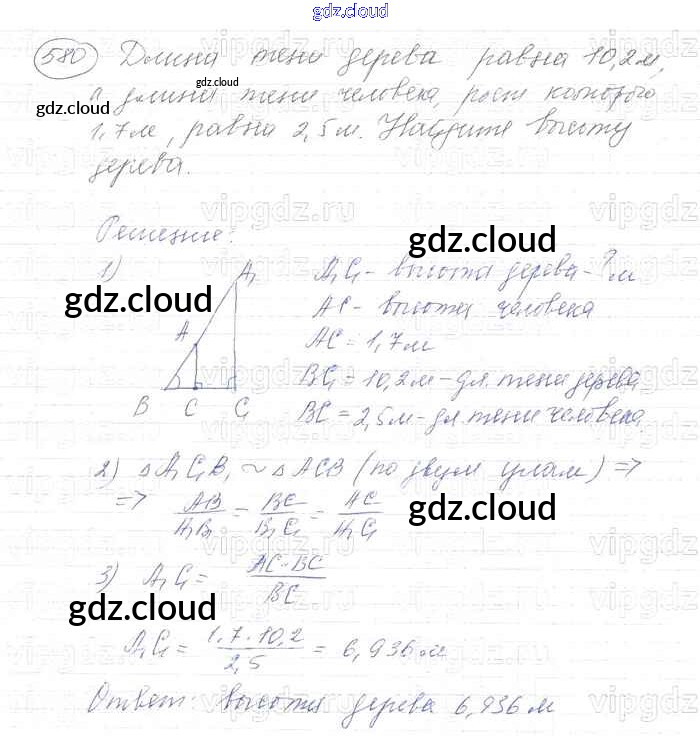 gdz.cloud
580 Длина тени дерева равна 10,2 м,
gdz.cloud
gdz.cloud
а длина тени человека, рост которого
1,7 м, равна 2,5 м. Найдите высоту
дерева.
Решение:
gdz.cloud
1) A₁ A₁C₁ - высота дерева - ? м
gdz.cloud
AC - высота человека
A AC = 1,7 м
BC₁ = 10,2 м - дл. тени дерева
B C C₁ BC = 2,5 м - дл. тени человека
2) △ A₁C₁B₁ ~ △ ACB (по двум углам) =>
=> AB/A₁B₁ = BC/B₁C₁ = AC/A₁C₁
gdz.cloud
3) A₁C₁ = AC·BC/BC
gdz.cloud
A₁C₁ = 1,7·10,2/2,5 = 6,936 м
Ответ: высота дерева 6,936 м